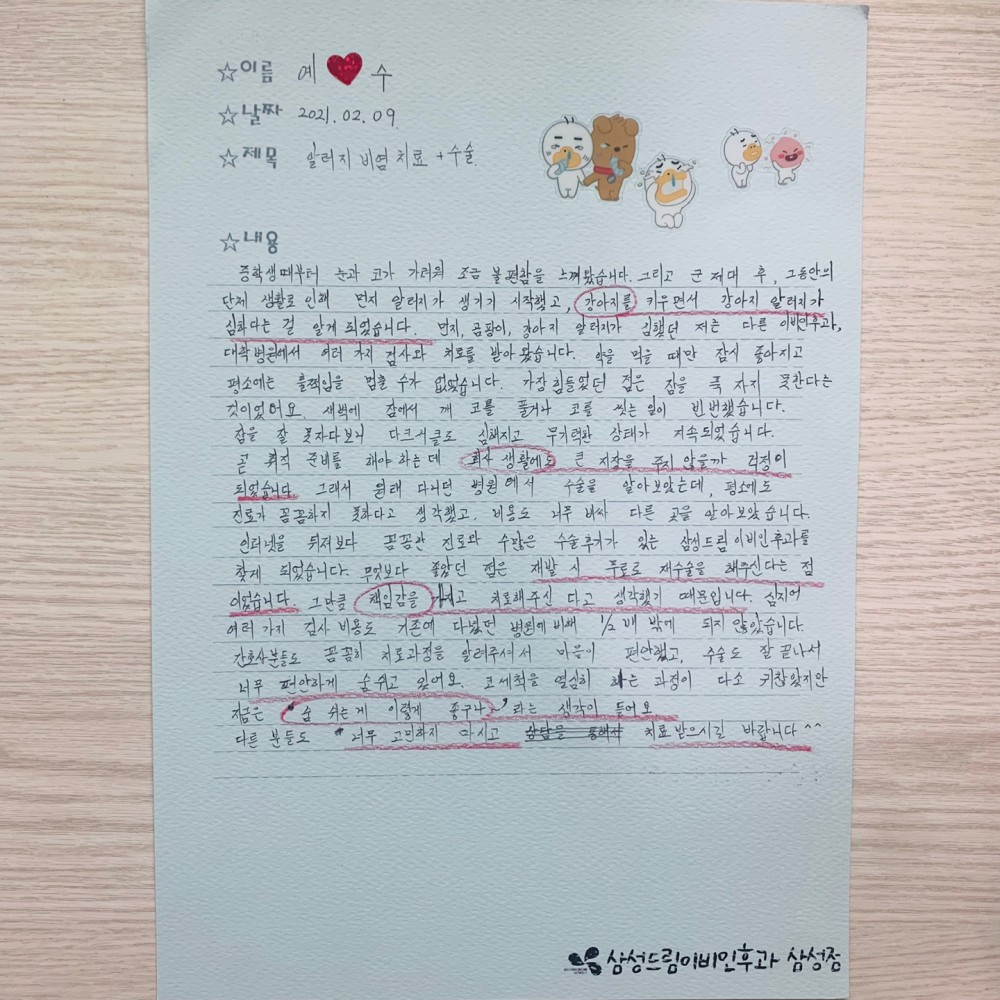 ☆이름 예♥수
☆날짜 2021.02.09
☆제목 알러지 비염 치료 + 수술.
☆내용
중학생때부터 눈과 코가 가려워 조금 불편함을 느껴왔습니다. 그리고 군 제대 후, 그동안의
단체 생활로 인해 먼지 알러지가 생기기 시작했고, 강아지를 키우면서 강아지 알러지가
심하다는 걸 알게 되었습니다. 먼지, 곰팡이, 강아지 알러지가 심했던 저는 다른 이비인후과,
대학병원에서 여러 가지 검사와 치료를 받아 왔습니다. 약을 먹을 때만 잠시 좋아지고
평소에는 훌쩍임을 멈출 수가 없었습니다. 가장 힘들었던 점은 잠을 푹 자지 못한다는
것이었어요. 새벽에 잠에서 깨 코를 풀거나 코를 씻는 일이 빈번했습니다.
잠을 잘 못자다보니 다크서클도 심해지고 무기력한 상태가 지속되었습니다.
곧 취직 준비를 해야 하는데 회사 생활에도 큰 지장을 주지 않을까 걱정이
되었습니다. 그래서 원래 다니던 병원에서 수술을 알아보았는데, 평소에도
진료가 꼼꼼하지 못하다고 생각했고, 비용도 너무 비싸 다른 곳을 알아보았습니다.
인터넷을 뒤져보다 꼼꼼한 진료와 수많은 수술후기가 있는 삼성드림이비인후과를
찾게 되었습니다. 무엇보다 좋았던 점은 재발 시 무료로 재수술을 해주신다는 점
이었습니다. 그만큼 책임감을 가지고 치료해주신다고 생각했기 때문입니다. 심지어
여러 가지 검사 비용도 기존에 다녔던 병원에 비해 1/2배 밖에 되지 않았습니다.
간호사분들도 꼼꼼히 치료과정을 알려주셔서 마음이 편안했고, 수술도 잘 끝나서
너무 편안하게 숨쉬고 있어요. 코세척을 열심히 하는 과정이 다소 귀찮았지만
지금은 "숨 쉬는게 이렇게 좋구나" 라는 생각이 들어요
다른 분들도 너무 고민하지 마시고 상담을 통해서 치료 받으시길 바랍니다^^
삼성드림이비인후과 삼성점